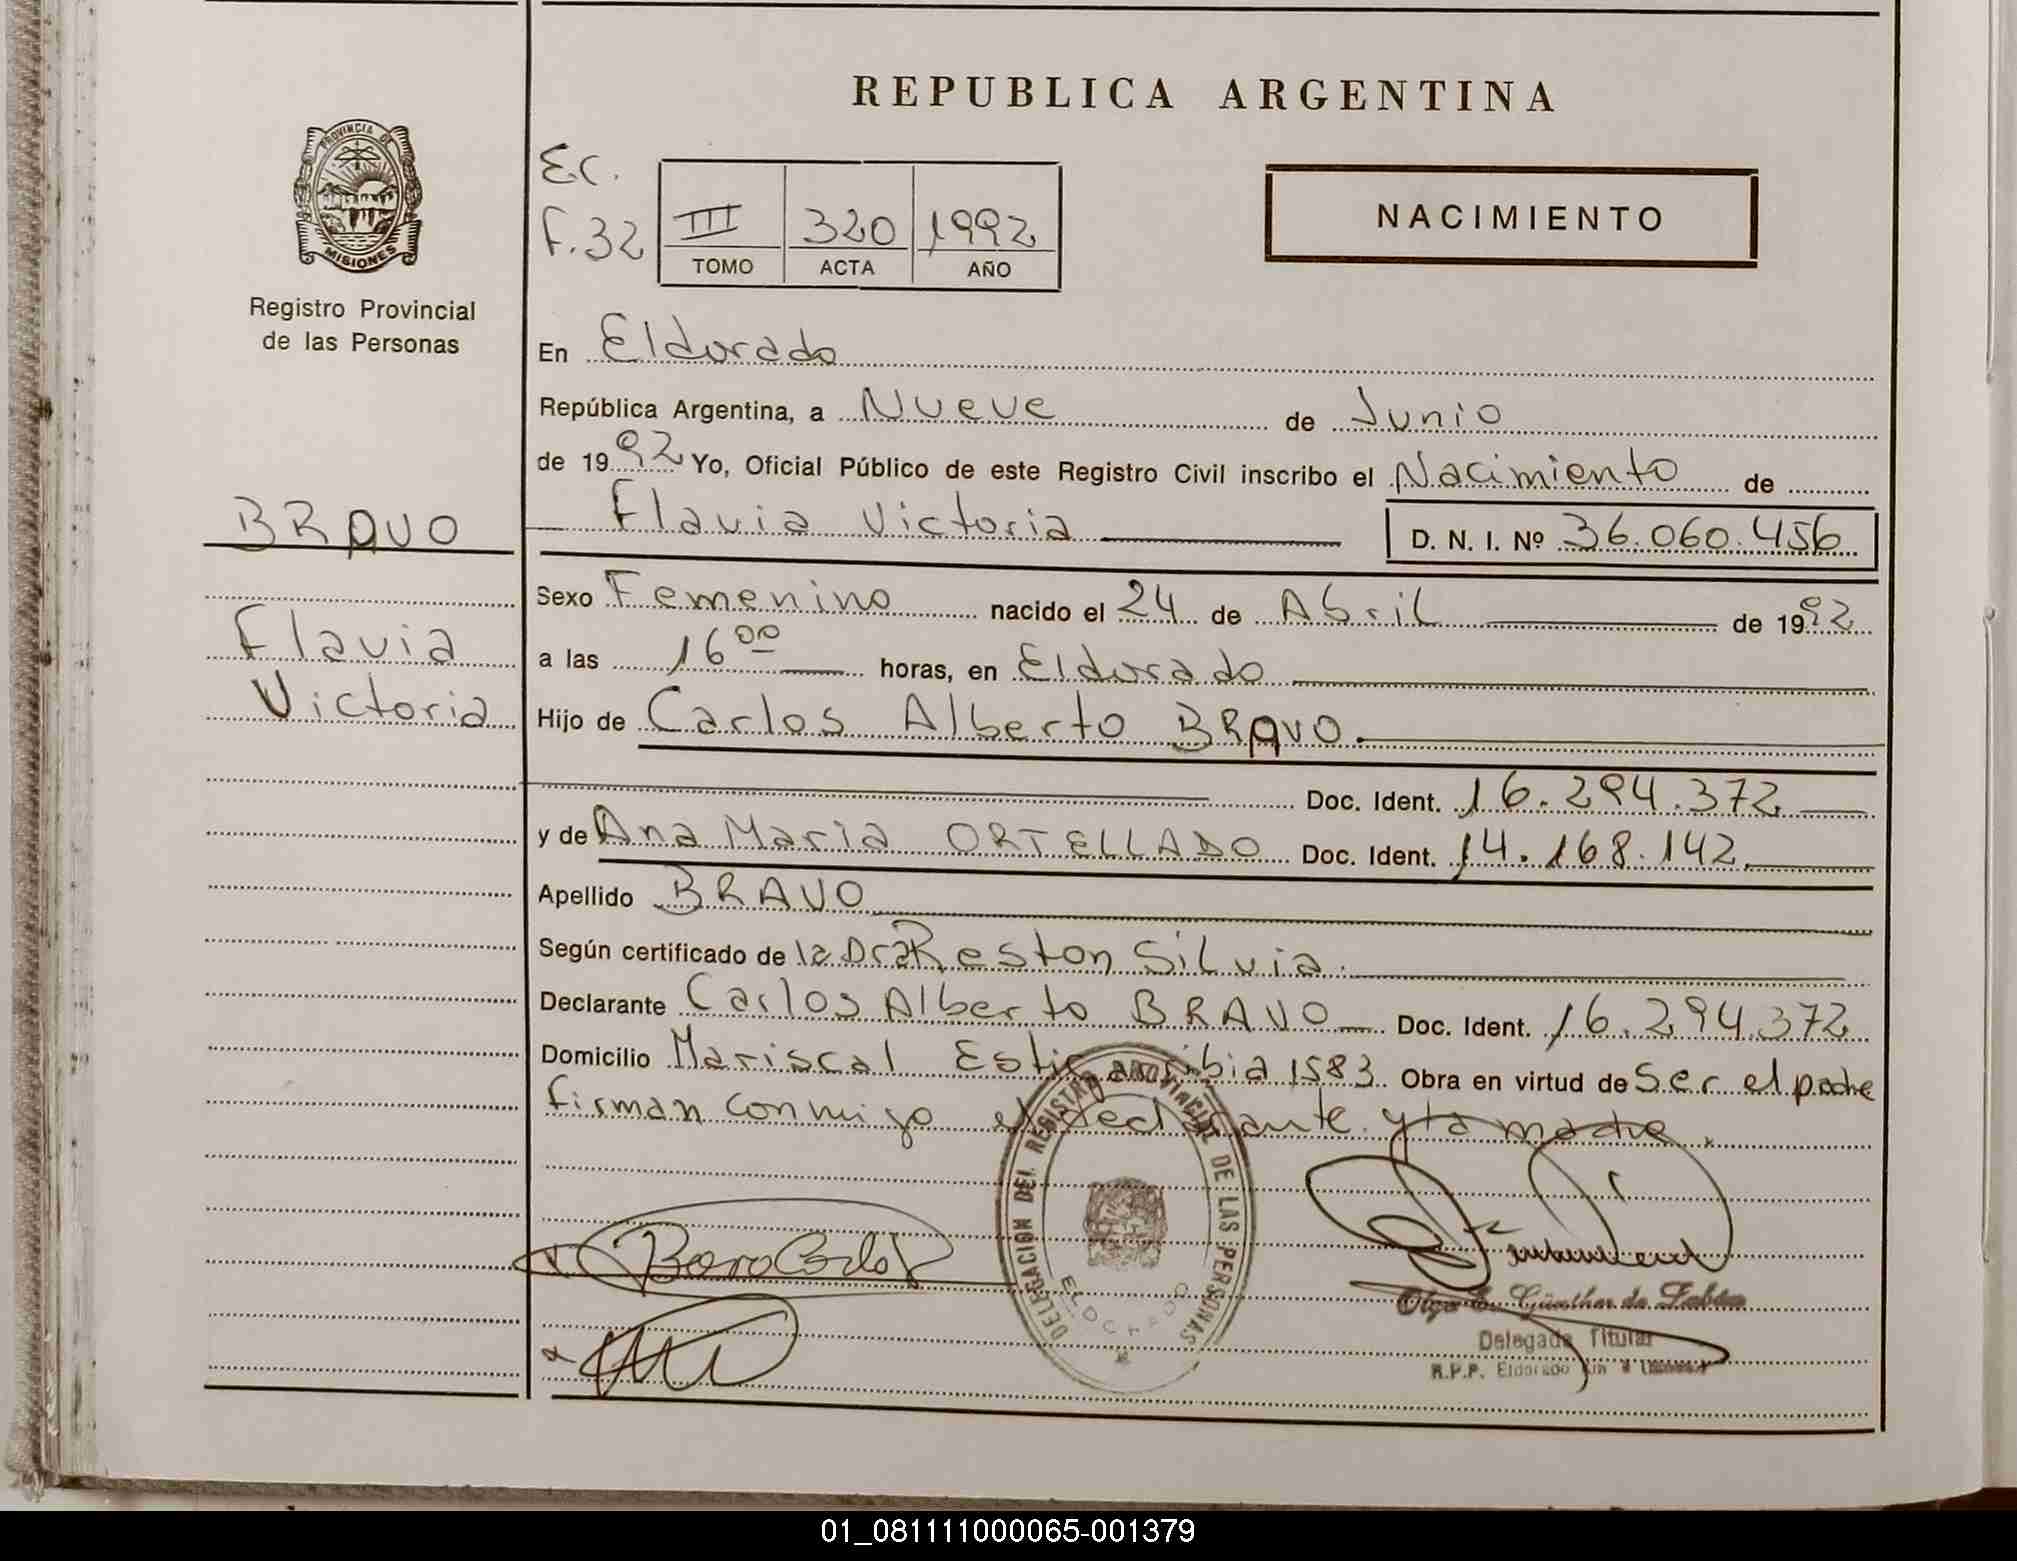 REPUBLICA ARGENTINA
PROVINCIA DE
MISIONES
Registro Provincial
de las Personas
E.C.
F.32
III 320 1992
TOMO ACTA AÑO
NACIMIENTO
En Eldorado
República Argentina, a Nueve de Junio
de 1992 Yo, Oficial Público de este Registro Civil inscribo el Nacimiento de
BRAVO
Flavia Victoria D. N. I. Nº 36.060.456
Sexo Femenino nacido el 24 de Abril de 1992
Flavia
a las 16 00 horas, en Eldorado
Victoria
Hijo de Carlos Alberto BRAVO.
Doc. Ident. 16.294.372
y de Ana Maria ORTELLADO Doc. Ident. 14.168.142
Apellido BRAVO
Según certificado de la Dra Reston Silvia.
Declarante Carlos Alberto BRAVO Doc. Ident. 16.294.372
Domicilio Mariscal Estigarribia 1583 Obra en virtud de Ser el padre
firman conmigo el declarante y la madre.
DELEGACION DEL REGISTRO PROVINCIAL DE LAS PERSONAS
ELDORADO
Bravo Carlos
Olga E. Günther de
Delegada Titular
R.P.P. Eldorado
01_081111000065-001379